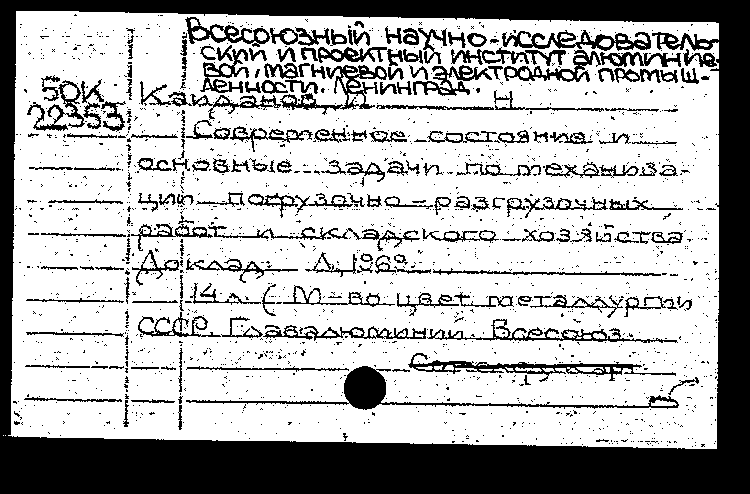 Всесоюзный научно-исследователь-
ский и проектный институт алюминие-
вой, магниевой и электродной промыш-
ленности. Ленинград.
50К
22353
Кайданов, И Н
Современное состояние и
основные задачи по механиза-
ции погрузочно-разгрузочных
работ и складского хозяйства
Доклад. Л, 1969.
14 л. (М-во цвет металлургии
СССР. Главалюминий. Всесоюз.